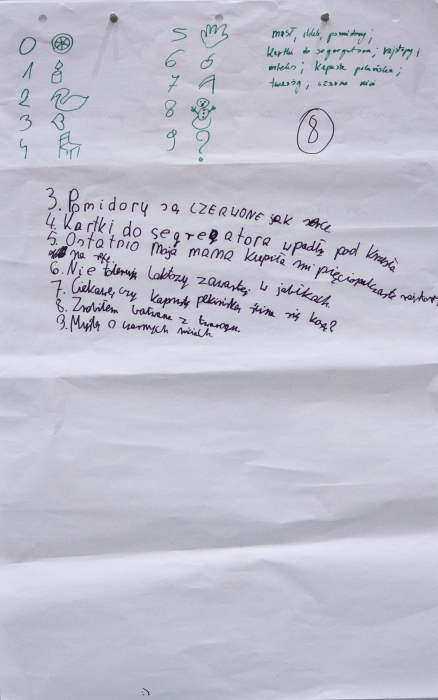 0
1
2
3
4
5
6
7
8
9 ?
masło, chleb, pomidory;
kartki do segregatora; rajstopy;
mleko; kapusta pekińska;
twaróg, czarne nici
8
3. Pomidory są CZERWONE jak serce
4. Kartki do segregatora wpadły pod krzesło
5. Ostatnio Moja mama kupiła mi pięciopalczaste rajstopy
na ręce
6. Nie toleruję laktozy zawartej w jabłkach.
7. Ciekawe, czy kapustę pekińską ścina się kosą?
8. Zrobiłem bałwana z twarogu.
9. Myślę o czarnych niciach
:)